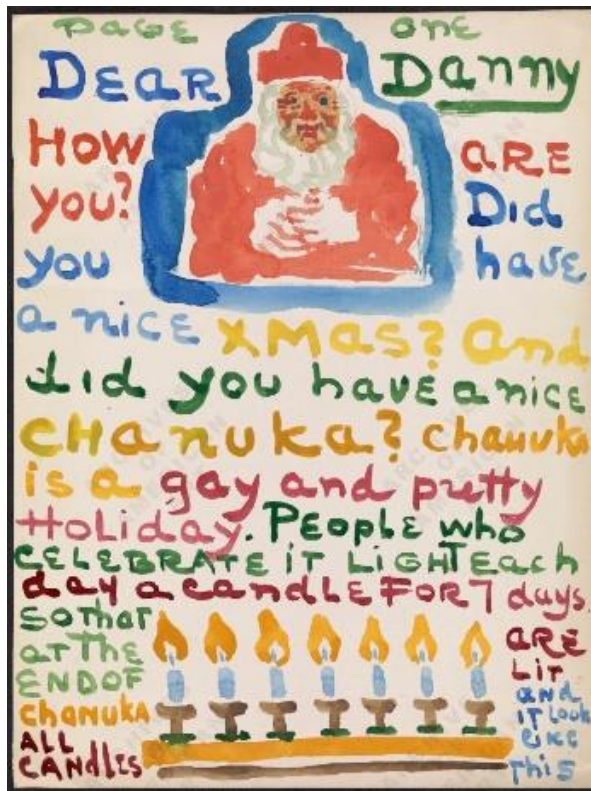 PAGE ONE
DEAR Danny
HOW ARE
you? Did
you have
a nice XMAS? And
did you have a nice
CHanuka? Chanuka
is a gay and pretty
Holiday. PEOPLE who
CELEBRATE iT LiGHT Each
day a candle FOR 7 days
SO THAT
AT THE
END OF
CHANUKA
ALL
CANdLES
ARE
LiT
and
iT Look
LiKE
This